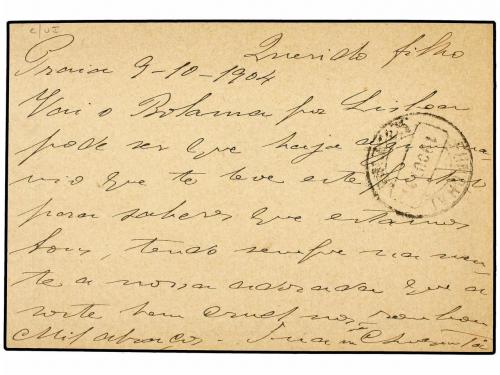 Querido filho
Praia 9-10-1904
Vai o Bolama por Lisboa
pode ser que haja algum na-
vio que te leve este postal
para saberes que estamos
bons, tendo sempre na men-
te a nossa adorada que a
sorte tam cruel nos roubou
Mil abraços.